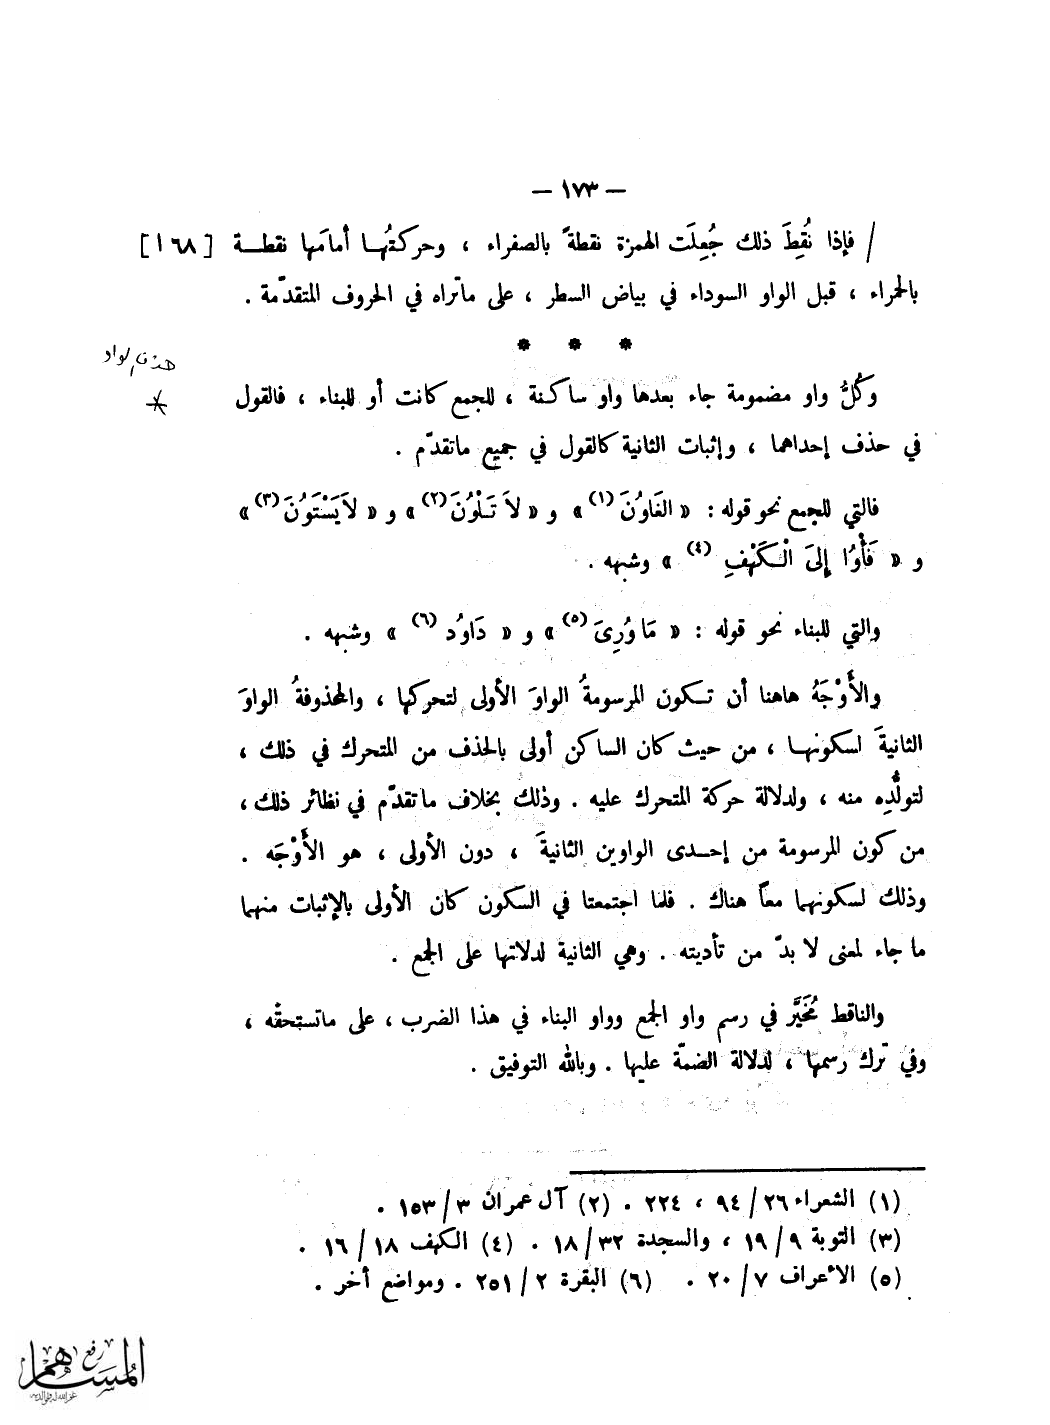 — ١٧٣ —
/ فإذا نُقِطَ ذلك جُعِلَت الهمزة نقطةً بالصفراء ، وحركتُهـا أمامَها نقطـة [١٦٨]
بالحمراء ، قبل الواو السوداء في بياض السطر ، على ماتراه في الحروف المتقدّمة .
* * *
حذف لواو
وكُلُّ واو مضمومة جاء بعدها واو ساكـنة ، للجمع كانت أو للبناء ، فالقول
في حذف إحداهما ، وإثبات الثانية كالقول في جميع ماتقدّم .
فالتي للجمع نحو قوله : « الغَاوُنَ (١) » و « لاَ تَـلْوُنَ (٢) » و « لاَيَسْتَوُنَ (٣) »
و « فَأْوُا إِلىَ الْـكَهْفِ (٤) » وشبهه .
والتي للبناء نحو قوله : « مَا وُرِىَ (٥) » و « دَاوُد (٦) » وشبهه .
والأَوْجَهُ هاهنا أن تـكون المرسومةُ الواوَ الأولى لتحركها ، والمحذوفةُ الواوَ
الثانيةَ لسكونهـا ، من حيث كان الساكن أولى بالحذف من المتحرك في ذلك ،
لتولُّدِه منه ، ولدلالة حركة المتحرك عليه . وذلك بخلاف ماتقدّم في نظائر ذلك ،
من كون المرسومة من إحـدى الواوين الثانيةَ ، دون الأولى ، هو الأَوْجَه .
وذلك لسكونهما معاً هناك . فلما اجتمعتا في السكون كان الأولى بالإثبات منهما
ما جاء لمعنى لا بدّ من تأديته . وهي الثانية لدلالتها على الجمع .
والناقط مُخَيَّر في رسم واو الجمع وواو البناء في هذا الضرب ، على ماتستحقّه ،
وفي ترك رسمها ، لدلالة الضمّة عليها . وبالله التوفيق .
(١) الشعراء ٢٦/ ٩٤ ، ٢٢٤ . (٢) آل عمران ٣/ ١٥٣ .
(٣) التوبة ٩/ ١٩ ، والسجدة ٣٢/ ١٨ . (٤) الكهف ١٨/ ١٦ .
(٥) الأعراف ٧/ ٢٠ . (٦) البقرة ٢/ ٢٥١ . ومواضع أخر .
رفع
المساهم
غفر الله له ولوالديه